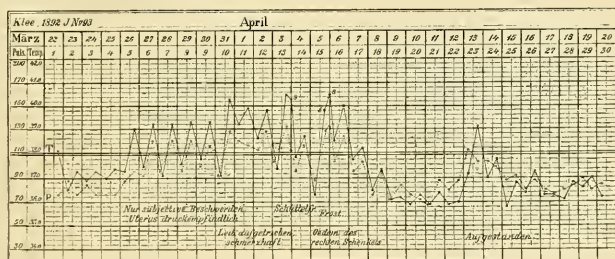 Klee, 1892 J No 93
April
März 22 23 24 25 26 27 28 29 30 31 1 2 3 4 5 6 7 8 9 10 11 12 13 14 15 16 17 18 19 20
Puls. Temp. 1 2 3 4 5 6 7 8 9 10 11 12 13 14 15 16 17 18 19 20 21 22 23 24 25 26 27 28 29 30
200 42.0
170 41.0
150 40.0
130 39.0
T
110 38.0
90 37.0
P
70 36.0
50 35.0
30 34.0
Nur subjective Beschwerden
Uterus druckempfindlich
Schüttelfr.
Frost.
Leib aufgetrieben
schmerzhaft
Oedem des
rechten Schenkels
Aufgestanden